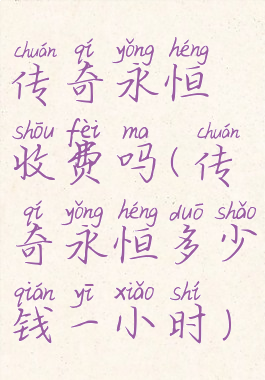 chuán qí yǒng héng
传奇永恒
shōu fèi ma chuán
收费吗(传
qí yǒng héng duō shǎo
奇永恒多少
qián yī xiǎo shí
钱一小时)